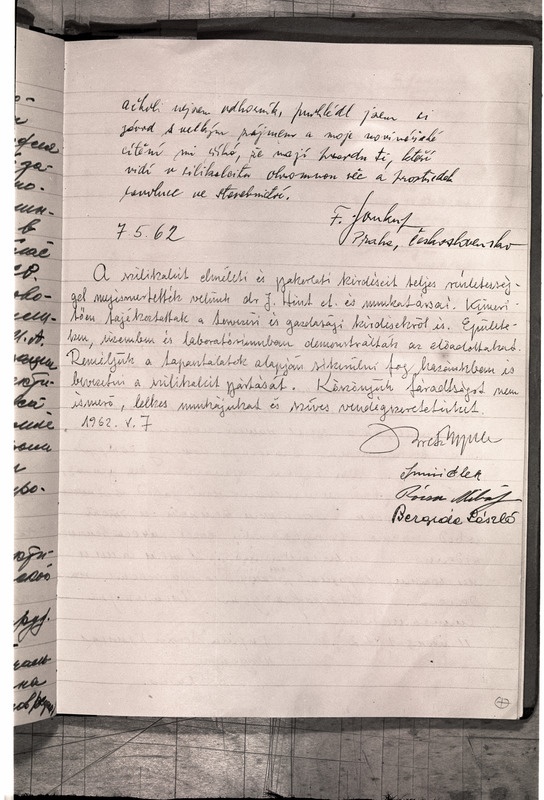 ačkoli nejsem odborník, prohlédl jsem si
závod s velkým zájmem a moje novinářské
cítění mi říká, že mají pravdu ti, kteří
vidí v silikalcitu ohromnou věc a prostředek
revoluce ve stavebnictví.
F.
7.5.62
Praha, Československo
A szilikalcit elméleti és gyakorlati kérdéseit teljes részletesség-
gel megismertették velünk dr J. Hint et. és munkatársai. Kimerí-
tően tájékoztattak a tervezési és gazdasági kérdésekről is. Épülete-
ken, üzemben és laboratóriumban demonstrálták az előadottakat.
Reméljük a tapasztalatok alapján sikerülni fog hazánkban is
bevezetni a szilikalcit gyártását. Köszönjük fáradtságot nem
ismerő, lelkes munkájukat és szíves vendégszeretetüket.
1962. V. 7
Rózsa Mihály
Bergida László